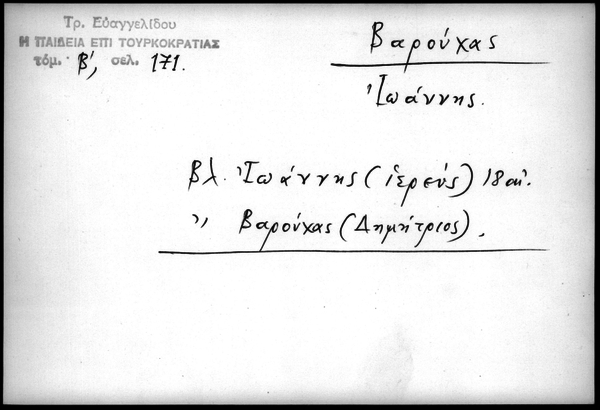 Τρ. Εὐαγγελίδου
Η ΠΑΙΔΕΙΑ ΕΠΙ ΤΟΥΡΚΟΚΡΑΤΙΑΣ
τόμ. Β΄, σελ. 171.
Βαρούχας
Ἰωάννης.
βλ. Ἰωάννης (ἱερεύς) 18 αἰ.
〃 Βαρούχας (Δημήτριος).